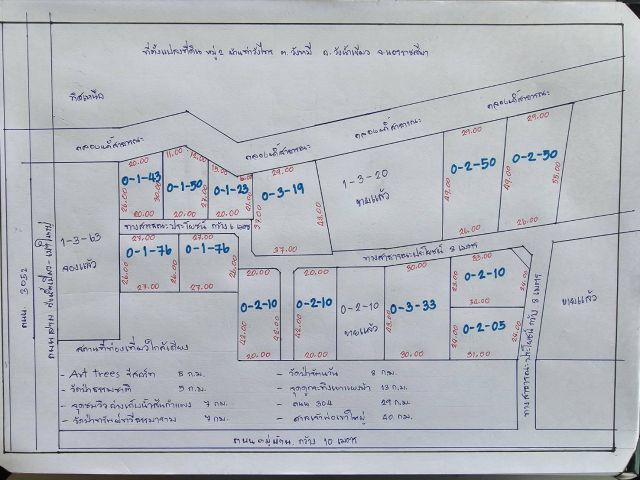 ที่ตั้งแปลงที่ดิน หมู่ 2 ต. วังหมี อ. วังน้ำเขียว จ. นครราชสีมา
ทิศเหนือ
คลองน้ำสาธารณะ
คลองน้ำสาธารณะ
คลองน้ำสาธารณะ
คลองน้ำสาธารณะ
20.00
29.00
29.00
29.00
0-1-43
0-1-50
0-1-23
0-3-19
1-3-20
ขายแล้ว
0-2-50
0-2-50
26.00
30.00
27.00
49.00
55.00
20.00
20.00
20.00
37.00
26.00
26.00
ทางสาธารณะประโยชน์ กว้าง 6 เมตร
ทางสาธารณะประโยชน์ 8 เมตร
1-3-63
จองแล้ว
27.00
27.00
0-1-76
0-1-76
26.00
26.00
27.00
27.00
20.00
20.00
30.00
23.00
0-2-10
0-2-10
0-2-10
ขายแล้ว
0-3-33
0-2-10
0-2-05
42.00
42.00
42.00
24.00
20.00
20.00
30.00
31.00
ขายแล้ว
ทางสาธารณะประโยชน์ กว้าง 8 เมตร
ถนน 3052
สถานที่ท่องเที่ยวใกล้เคียง
- Art trees รีสอร์ท 5 ก.ม.
- วัดป่าธรรมชาติ 5 ก.ม.
- จุดชมวิว 7 ก.ม.
7 กม.
8 ก.ม.
- จุดดูกระทิงเขาแผงม้า 13 ก.ม.
- ถนน 304 29 ก.ม.
- ศาลเจ้าพ่อเขาใหญ่ 40 กม.
ถนนหมู่บ้าน กว้าง 10 เมตร